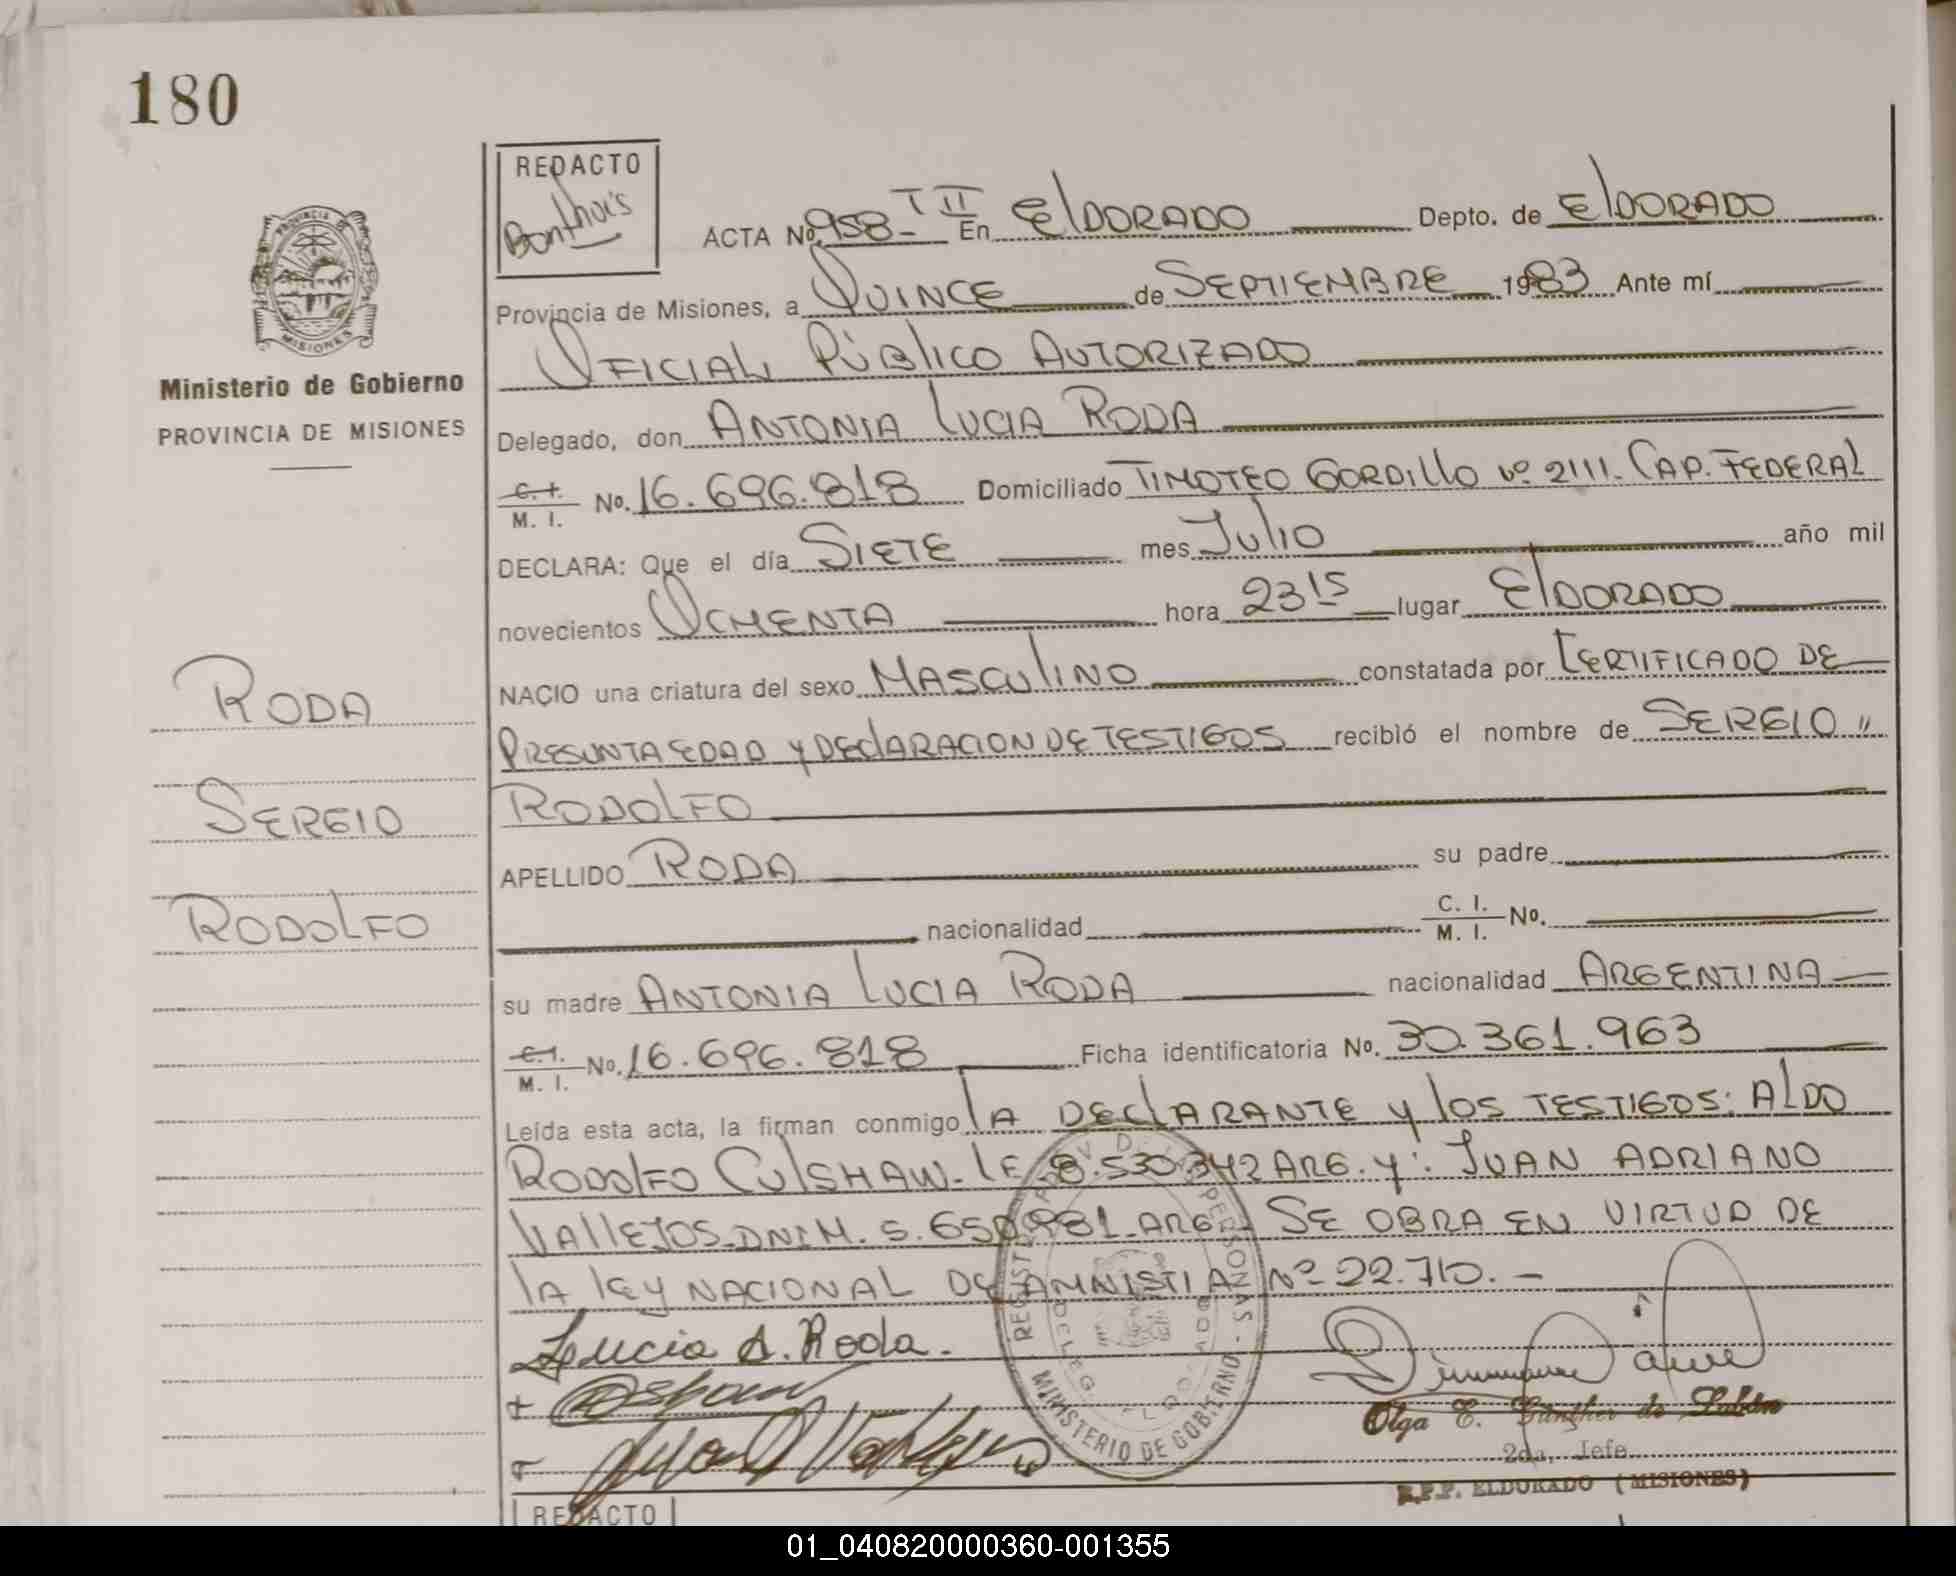 180
REDACTO
Bonthuis
PROVINCIA DE
MISIONES
Ministerio de Gobierno
PROVINCIA DE MISIONES
ACTA No. 958- T II En ElDORADO Depto. de ElDORADO
Provincia de Misiones, a QUINCE de SEPTIEMBRE 1983 Ante mí
OFICIAL PÚBlICO AUTORIZADO
Delegado, don ANTONIA LUCIA RODA
C. I. M. I. No. 16.696.818 Domiciliado TIMOTEO GORDIllO Nº 2111. CAP. FEDERAL
DECLARA: Que el día SIETE mes JUlIO año mil
novecientos OCHENTA hora 23 15 lugar ElDORADO
NACIO una criatura del sexo MASCUlINO constatada por CERTIFICADO DE
PRESUNTA EDAD y DEClARACION DE TESTIGOS recibió el nombre de SERGIO "
RODOlFO
APELLIDO RODA su padre
nacionalidad C. I. M. I. No.
su madre ANTONIA LUCIA RODA nacionalidad ARGENTINA
C. I. M. I. No. 16.696.818 Ficha identificatoria No. 30.361.963
Leída esta acta, la firman conmigo lA DEClARANTE y los TESTIGOS: AlDO
RODOlFO CUlSHAW. LE 8.530.342 ARG. y: JUAN ADRIANO
VAllEJOS. DNI M. 5.650.981 ARG. SE OBRA EN VIRTUD DE
lA lEy NACIONAL DE AMNISTIA Nº 22.710. -
RODA
SERGIO
RODOlFO
Lucia A. Roda.
REGISTRO PROV. DE LAS PERSONAS - MINISTERIO DE GOBIERNO
DELEG. ELDORADO
Olga E. Günther de
2da. Jefe
R.P.P. ELDORADO (MISIONES)
REDACTO
01_040820000360-001355